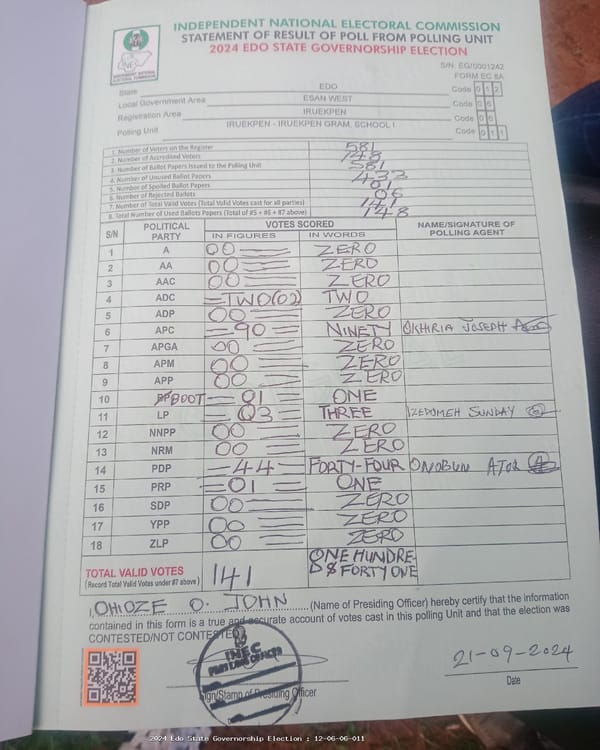 INDEPENDENT NATIONAL ELECTORAL COMMISSION
STATEMENT OF RESULT OF POLL FROM POLLING UNIT
2024 EDO STATE GOVERNORSHIP ELECTION
S/N: EG/0001242
FORM EC 8A
State EDO Code 0 1 2
Local Government Area ESAN WEST Code 0 6
Registration Area IRUEKPEN Code 0 6
Polling Unit IRUEKPEN - IRUEKPEN GRAM. SCHOOL I Code 0 1 1
1. Number of Voters on the Register 581
2. Number of Accredited Voters 148
3. Number of Ballot Papers Issued to the Polling Unit 581
4. Number of Unused Ballot Papers 433
5. Number of Spoiled Ballot Papers 01
6. Number of Rejected Ballots 06
7. Number of Total Valid Votes (Total Valid Votes cast for all parties) 141
8. Total Number of Used Ballots Papers (Total of #5 + #6 + #7 above) 148
S/N POLITICAL PARTY VOTES SCORED NAME/SIGNATURE OF POLLING AGENT
IN FIGURES IN WORDS
1 A 00 ZERO
2 AA 00 ZERO
3 AAC 00 ZERO
4 ADC TWO(02) TWO
5 ADP 00 ZERO
6 APC 90 NINETY OKHIRIA JOSEPH
7 APGA 00 ZERO
8 APM 00 ZERO
9 APP 00 ZERO
10 BOOT 01 ONE
11 LP 03 THREE IZEDOMEH SUNDAY
12 NNPP 00 ZERO
13 NRM 00 ZERO
14 PDP 44 FORTY-FOUR ONOBUN ATOR
15 PRP 01 ONE
16 SDP 00 ZERO
17 YPP 00 ZERO
18 ZLP 00 ZERO
TOTAL VALID VOTES 141 ONE HUNDRE
(Record Total Valid Votes under #7 above) D & FORTY ONE
I, OHIOZE O. JOHN (Name of Presiding Officer) hereby certify that the information
contained in this form is a true and accurate account of votes cast in this polling Unit and that the election was
CONTESTED/NOT CONTESTED
INEC
PRESIDING OFFICER
21-09-2024
Sign/Stamp of Presiding Officer
Date
2024 Edo State Governorship Election : 12-06-06-011